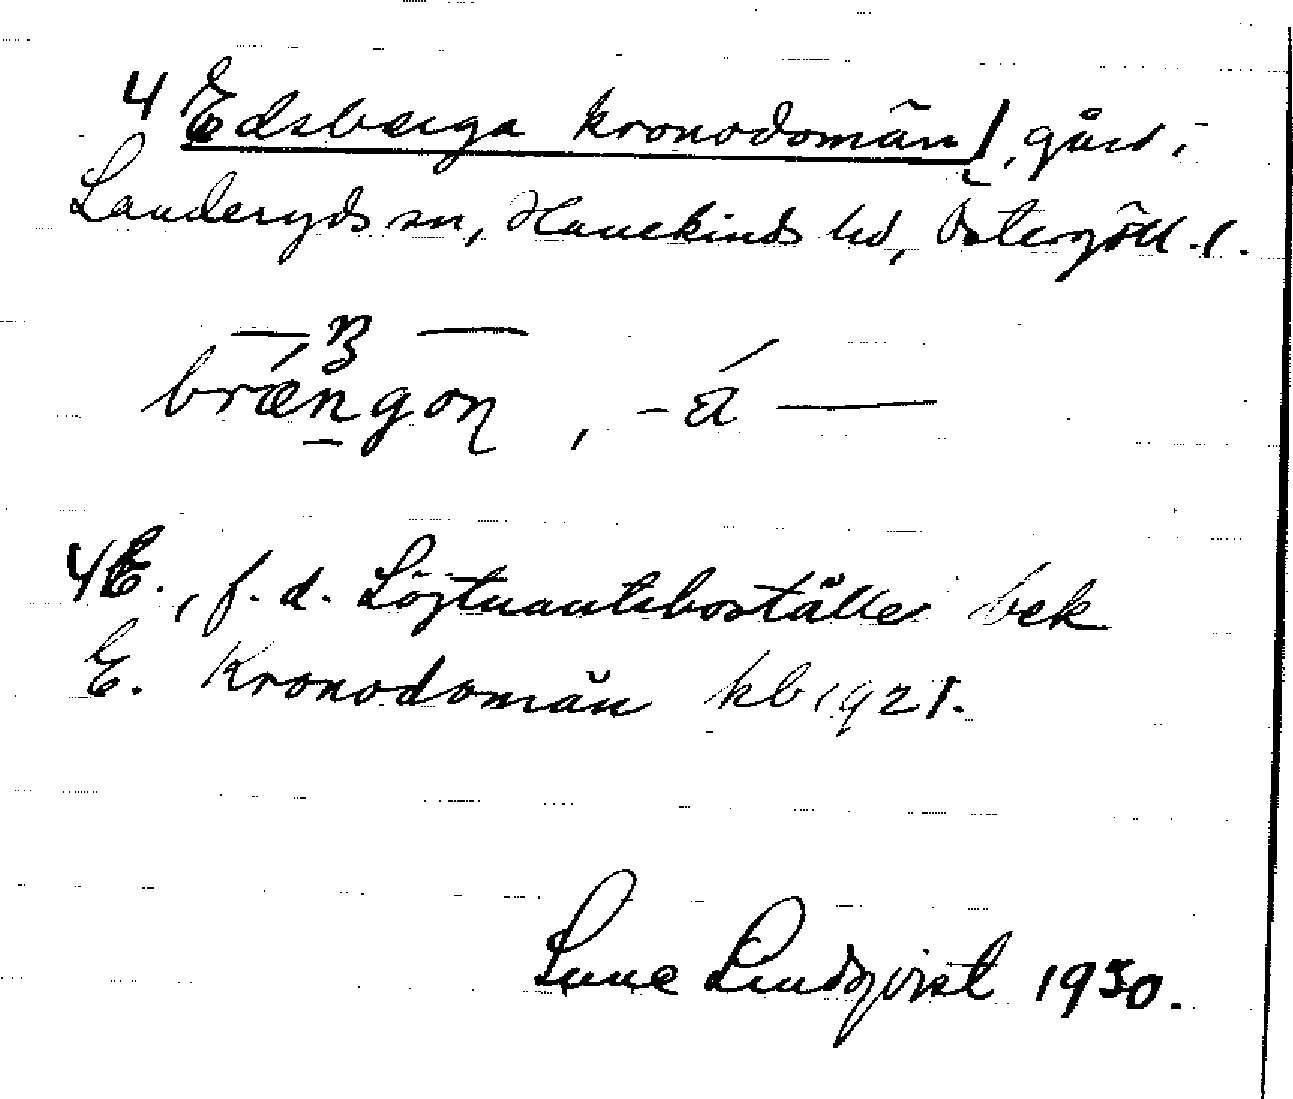 4 Edsberga kronodomän), gård i
Landeryds sn, Hanekinds hd, Östergötl. l.
brængon, -a
4 E., f. d. Löjtnantsboställe bek
E. Kronodomän kb 1921.
Sune Lindqvist 1930.